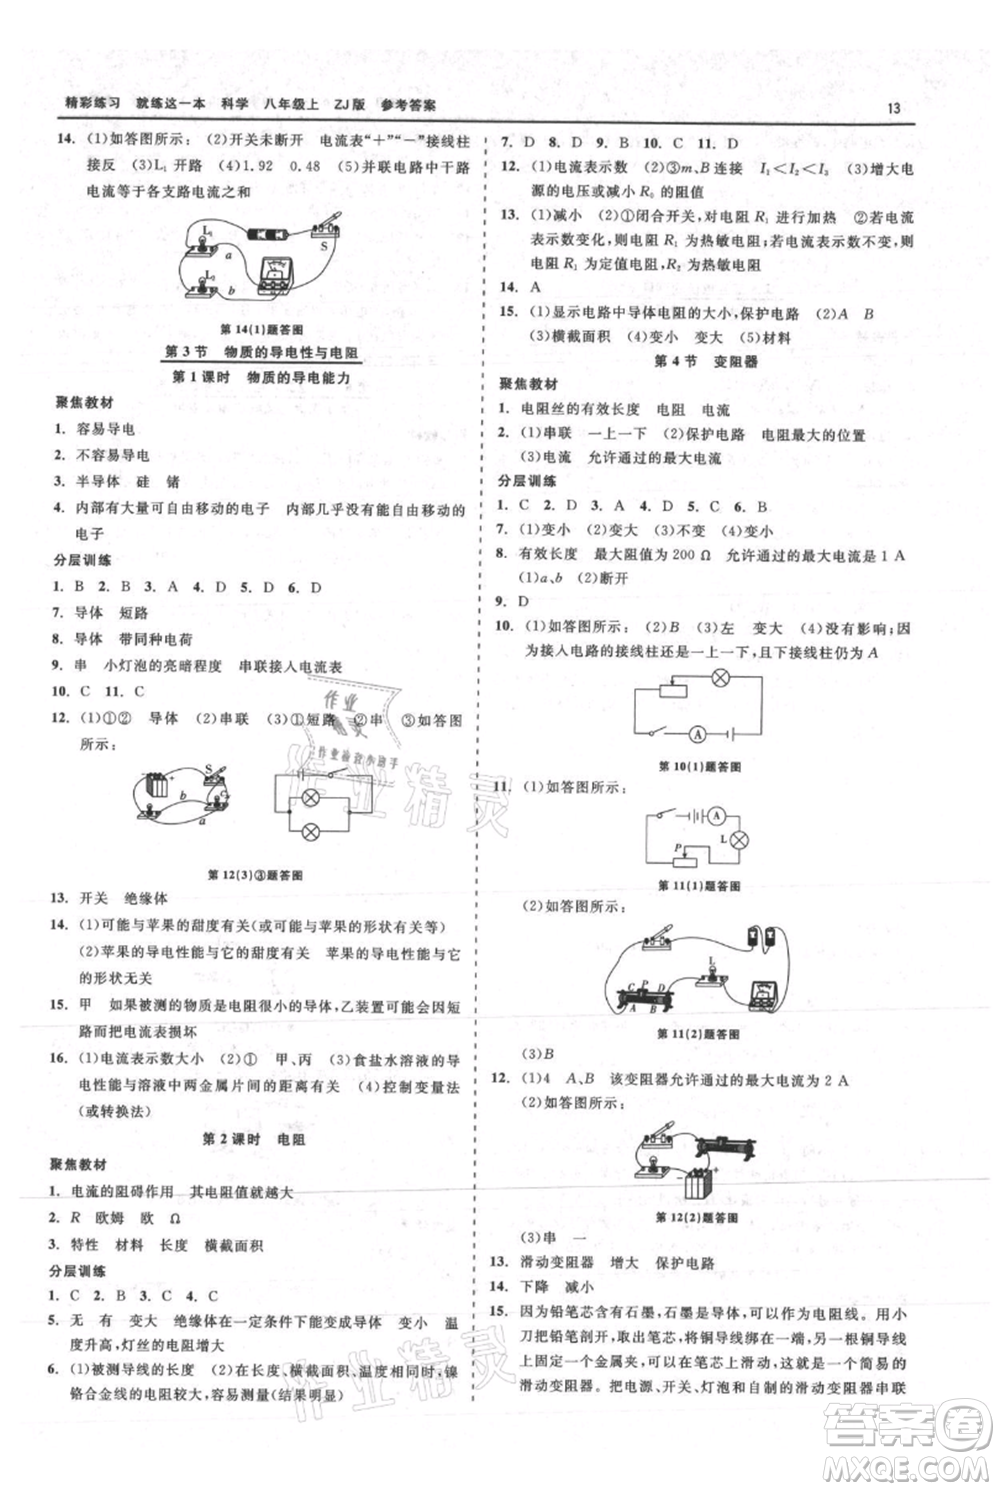 精彩练习 就练这一本 科学 八年级上 ZJ版 参考答案
13
14. (1)如答图所示: (2)开关未断开 电流表“+”“-”接线柱
接反 (3)L₁开路 (4)1.92 0.48 (5)并联电路中干路
电流等于各支路电流之和
L₁
S
a
L₂
b
第14(1)题答图
第3节 物质的导电性与电阻
第1课时 物质的导电能力
聚焦教材
1. 容易导电
2. 不容易导电
3. 半导体 硅 锗
4. 内部有大量可自由移动的电子 内部几乎没有能自由移动的
电子
分层训练
1. B 2. B 3. A 4. D 5. D 6. D
7. 导体 短路
8. 导体 带同种电荷
9. 串 小灯泡的亮暗程度 串联接入电流表
10. C 11. C
12. (1)①② 导体 (2)串联 (3)①短路 ②串 ③如答图
所示:
S
b
a
第12(3)③题答图
13. 开关 绝缘体
14. (1)可能与苹果的甜度有关(或可能与苹果的形状有关等)
(2)苹果的导电性能与它的甜度有关 苹果的导电性能与它
的形状无关
15. 甲 如果被测的物质是电阻很小的导体,乙装置可能会因短
路而把电流表损坏
16. (1)电流表示数大小 (2)① 甲、丙 (3)食盐水溶液的导
电性能与溶液中两金属片间的距离有关 (4)控制变量法
(或转换法)
第2课时 电阻
聚焦教材
1. 电流的阻碍作用 其电阻值就越大
2. R 欧姆 欧 Ω
3. 特性 材料 长度 横截面积
分层训练
1. C 2. B 3. C 4. C
5. 无 有 变大 绝缘体在一定条件下能变成导体 变小 温
度升高,灯丝的电阻增大
6. (1)被测导线的长度 (2)在长度、横截面积、温度相同时,镍
铬合金线的电阻较大,容易测量(结果明显)
7. D 8. D 9. B 10. C 11. D
12. (1)电流表示数 (2)③m、B连接 I₁<I₂<I₃ (3)增大电
源的电压或减小R₀的阻值
13. (1)减小 (2)①闭合开关,对电阻R₁进行加热 ②若电流
表示数变化,则电阻R₁为热敏电阻;若电流表示数不变,则
电阻R₁为定值电阻,R₂为热敏电阻
14. A
15. (1)显示电路中导体电阻的大小,保护电路 (2)变小
(3)横截面积 (4)变小 变大 (5)材料
第4节 变阻器
聚焦教材
1. 电阻丝的有效长度 电阻 电流
2. (1)串联 一上一下 (2)保护电路 电阻最大的位置
(3)电流 允许通过的最大电流
分层训练
1. C 2. D 3. A 4. D 5. C 6. B
7. (1)变小 (2)变大 (3)不变 (4)变小
8. 有效长度 最大阻值为200 Ω 允许通过的最大电流是1 A
(1)a、b (2)断开
9. D
10. (1)如答图所示: (2)B (3)左 变大 (4)没有影响;因
为接入电路的接线柱还是一上一下,且下接线柱仍为A
A
第10(1)题答图
11. (1)如答图所示:
A
L
P
第11(1)题答图
(2)如答图所示:
L
C P D
A B
第11(2)题答图
(3)B
12. (1)4 A、B 该变阻器允许通过的最大电流为2 A
(2)如答图所示:
+
-
第12(2)题答图
(3)串 一
13. 滑动变阻器 增大 保护电路
14. 下降 减小
15. 因为铅笔芯含有石墨,石墨是导体,可以作为电阻线。用小
刀把铅笔剖开,取出笔芯,将铜导线的一端与笔芯相连,铜导线
上固定一个金属夹,可以在笔芯上滑动,就成为一个简易的
滑动变阻器。把电源、开关、灯泡和自制的滑动变阻器串联
作业精灵
作业检查小助手
作业精灵
作业精灵
答案圈
MXQE.COM